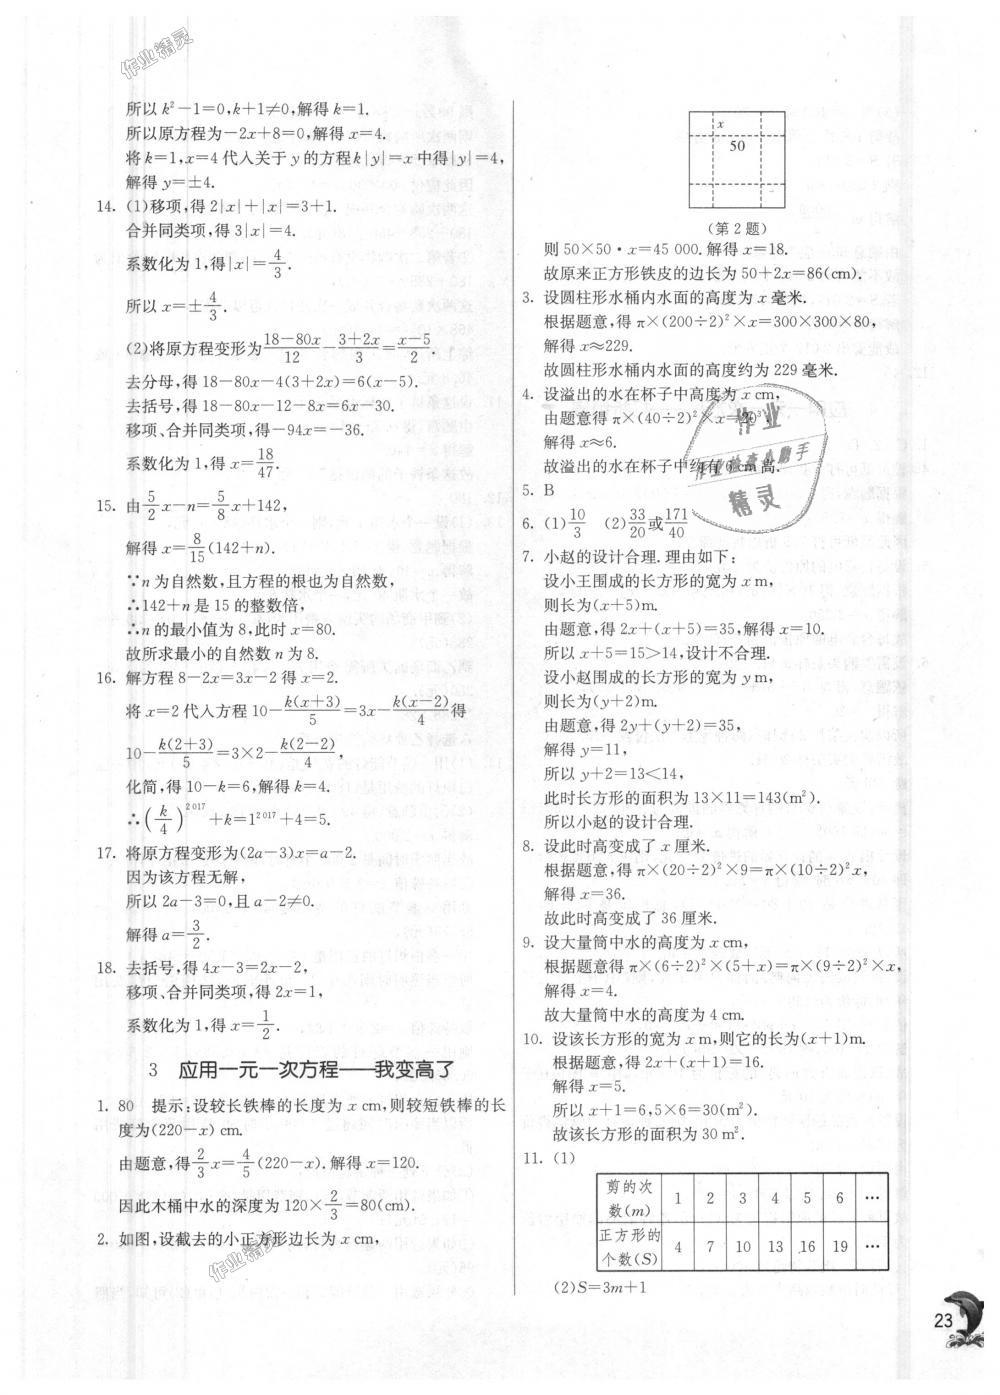 所以 k²－1=0,k+1≠0,解得 k=1.
所以原方程为－2x+8=0,解得 x=4.
将 k=1,x=4 代入关于 y 的方程 k|y|=x 中得|y|=4,
解得 y=±4.
14. (1)移项,得 2|x|+|x|=3+1.
合并同类项,得 3|x|=4.
系数化为 1,得|x|=4/3.
所以 x=±4/3.
(2)将原方程变形为(18－80x)/12－(3+2x)/3=(x－5)/2.
去分母,得 18－80x－4(3+2x)=6(x－5).
去括号,得 18－80x－12－8x=6x－30.
移项、合并同类项,得－94x=－36.
系数化为 1,得 x=18/47.
15. 由5/2x－n=5/8x+142,
解得 x=8/15(142+n).
∵n 为自然数,且方程的根也为自然数,
∴142+n 是 15 的整数倍,
∴n 的最小值为 8,此时 x=80.
故所求最小的自然数 n 为 8.
16. 解方程 8－2x=3x－2 得 x=2.
将 x=2 代入方程 10－k(x+3)/5=3x－k(x－2)/4 得
10－k(2+3)/5=3×2－k(2－2)/4,
化简,得 10－k=6,解得 k=4.
∴(k/4)^2 017+k=1^2 017+4=5.
17. 将原方程变形为(2a－3)x=a－2.
因为该方程无解,
所以 2a－3=0,且 a－2≠0.
解得 a=3/2.
18. 去括号,得 4x－3=2x－2,
移项、合并同类项,得 2x=1,
系数化为 1,得 x=1/2.
3 应用一元一次方程——我变高了
1. 80 提示:设较长铁棒的长度为 x cm,则较短铁棒的长
度为(220－x) cm.
由题意,得2/3x=4/5(220－x). 解得 x=120.
因此木桶中水的深度为 120×2/3=80(cm).
2. 如图,设截去的小正方形边长为 x cm,
x
50
(第 2 题)
则 50×50·x=45 000. 解得 x=18.
故原来正方形铁皮的边长为 50+2x=86(cm).
3. 设圆柱形水桶内水面的高度为 x 毫米.
根据题意,得 π×(200÷2)²×x=300×300×80,
解得 x≈229.
故圆柱形水桶内水面的高度约为 229 毫米.
4. 设溢出的水在杯子中高度为 x cm,
由题意得 π×(40÷2)²×x=20³.
解得 x≈6.
故溢出的水在杯子中约有 6 cm 高.
5. B
6. (1)10/3 (2)33/20或171/40
7. 小赵的设计合理. 理由如下:
设小王围成的长方形的宽为 x m,
则长为(x+5)m.
由题意,得 2x+(x+5)=35,解得 x=10.
所以 x+5=15>14,设计不合理.
设小赵围成的长方形的宽为 y m,
则长为(y+2)m.
由题意,得 2y+(y+2)=35,
解得 y=11,
所以 y+2=13<14,
此时长方形的面积为 13×11=143(m²).
所以小赵的设计合理.
8. 设此时高变成了 x 厘米.
根据题意,得 π×(20÷2)²×9=π×(10÷2)²x,
解得 x=36.
故此时高变成了 36 厘米.
9. 设大量筒中水的高度为 x cm,
根据题意得 π×(6÷2)²×(5+x)=π×(9÷2)²×x,
解得 x=4.
故大量筒中水的高度为 4 cm.
10. 设该长方形的宽为 x m,则它的长为(x+1)m.
根据题意,得 2x+(x+1)=16.
解得 x=5.
所以 x+1=6,5×6=30(m²).
故该长方形的面积为 30 m².
11. (1)
剪的次数(m) 1 2 3 4 5 6 …
正方形的个数(S) 4 7 10 13 16 19 …
(2)S=3m+1
23
作业精灵
作业
作业检查小助手
精灵
作业精灵